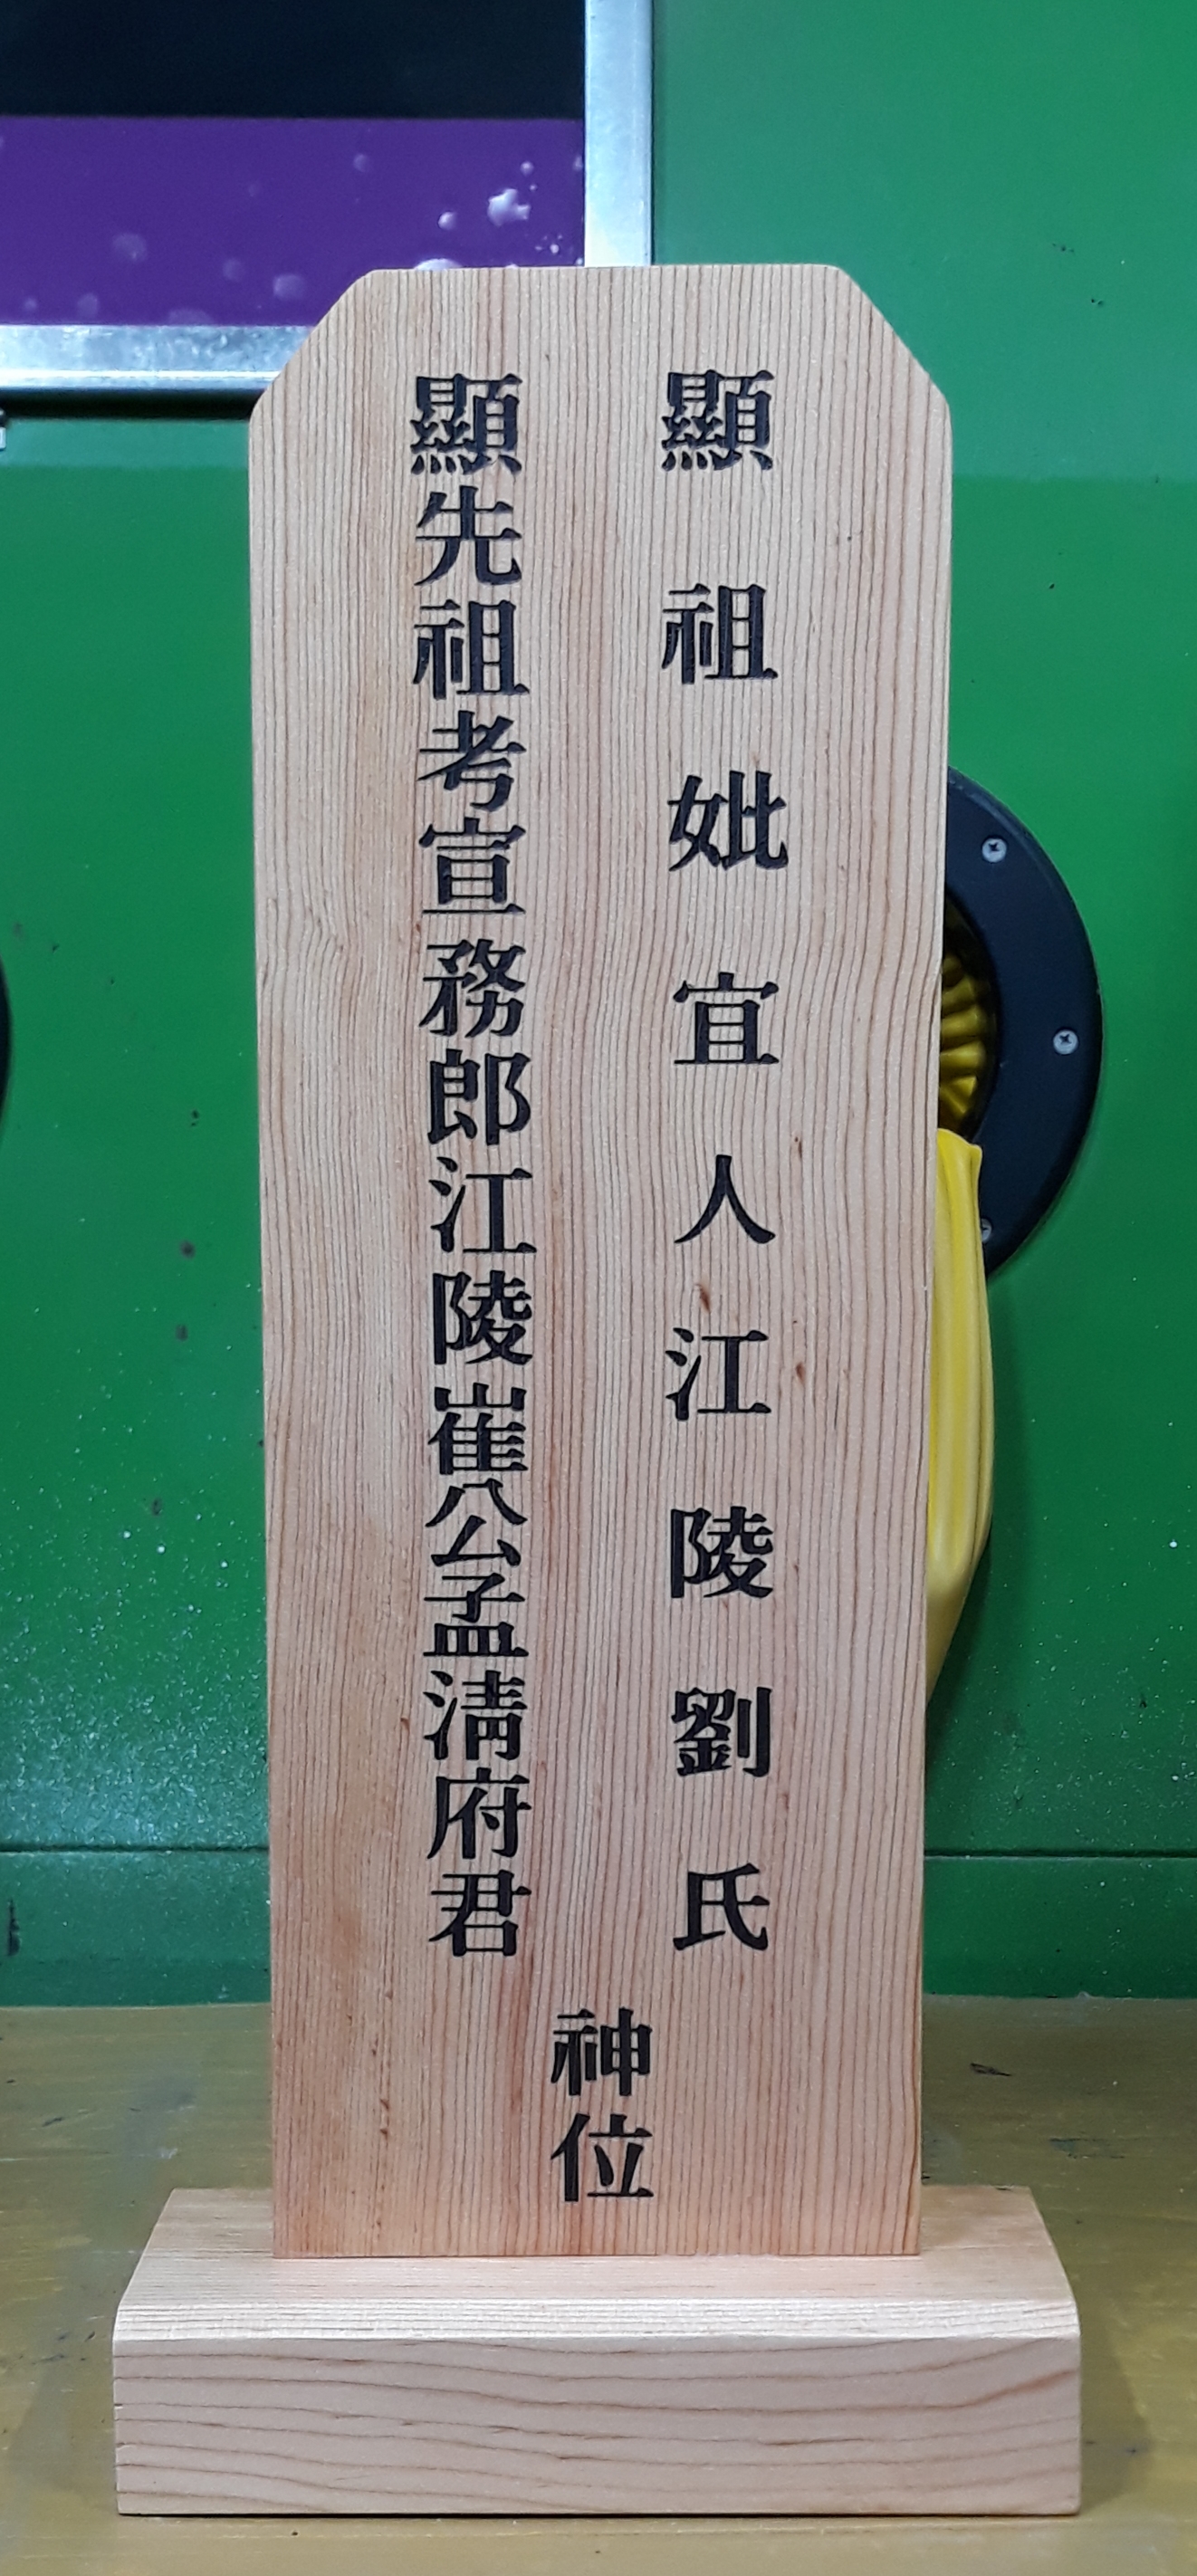 顯祖妣宜人江陵劉氏
顯先祖考宣務郎江陵崔公孟淸府君
神位